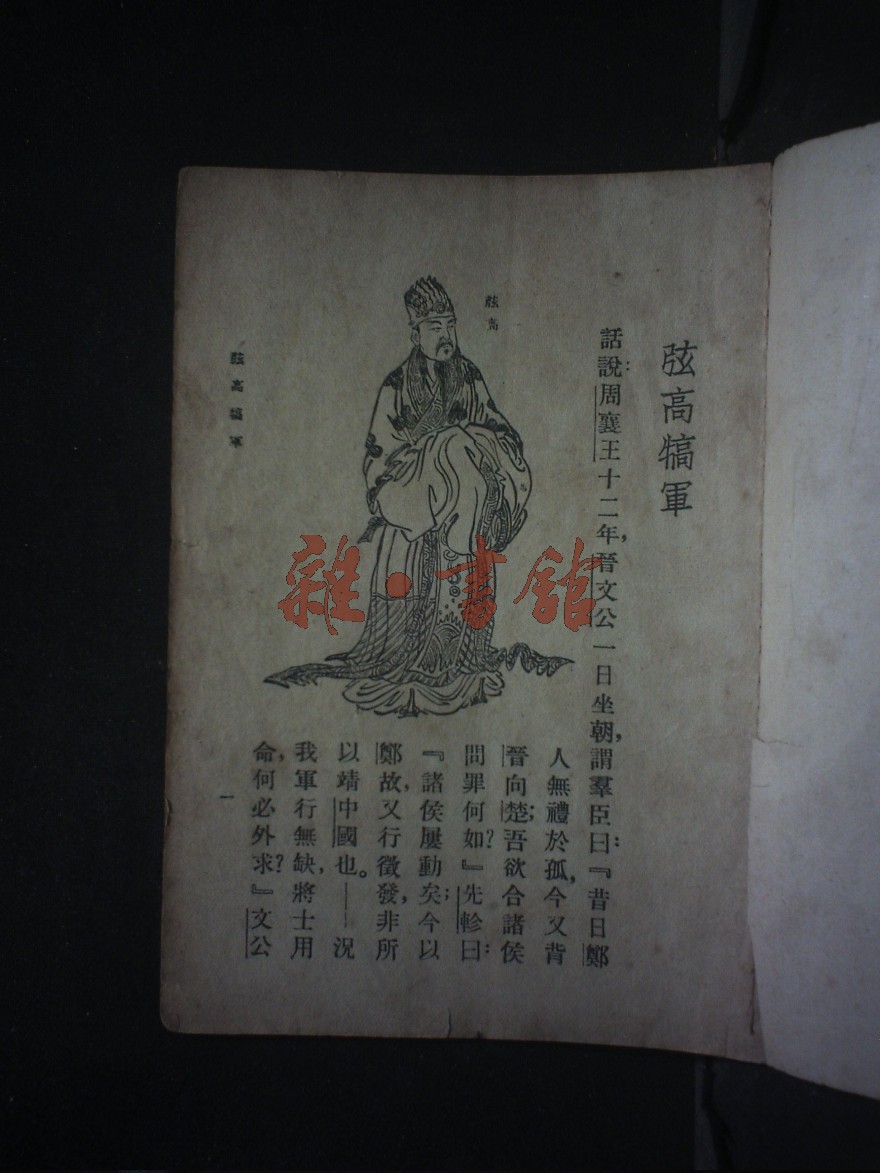 弦高犒軍
話說:周襄王十二年,晉文公一日坐朝,謂羣臣曰:『昔日鄭
人無禮於孤,今又背
晉向楚;吾欲合諸侯
問罪何如?』先軫曰:
『諸侯屢動矣;今以
鄭故,又行徵發,非所
以靖中國也。——況
我軍行無缺,將士用
命,何必外求?』文公
弦高
弦高犒軍
一
雜·書館